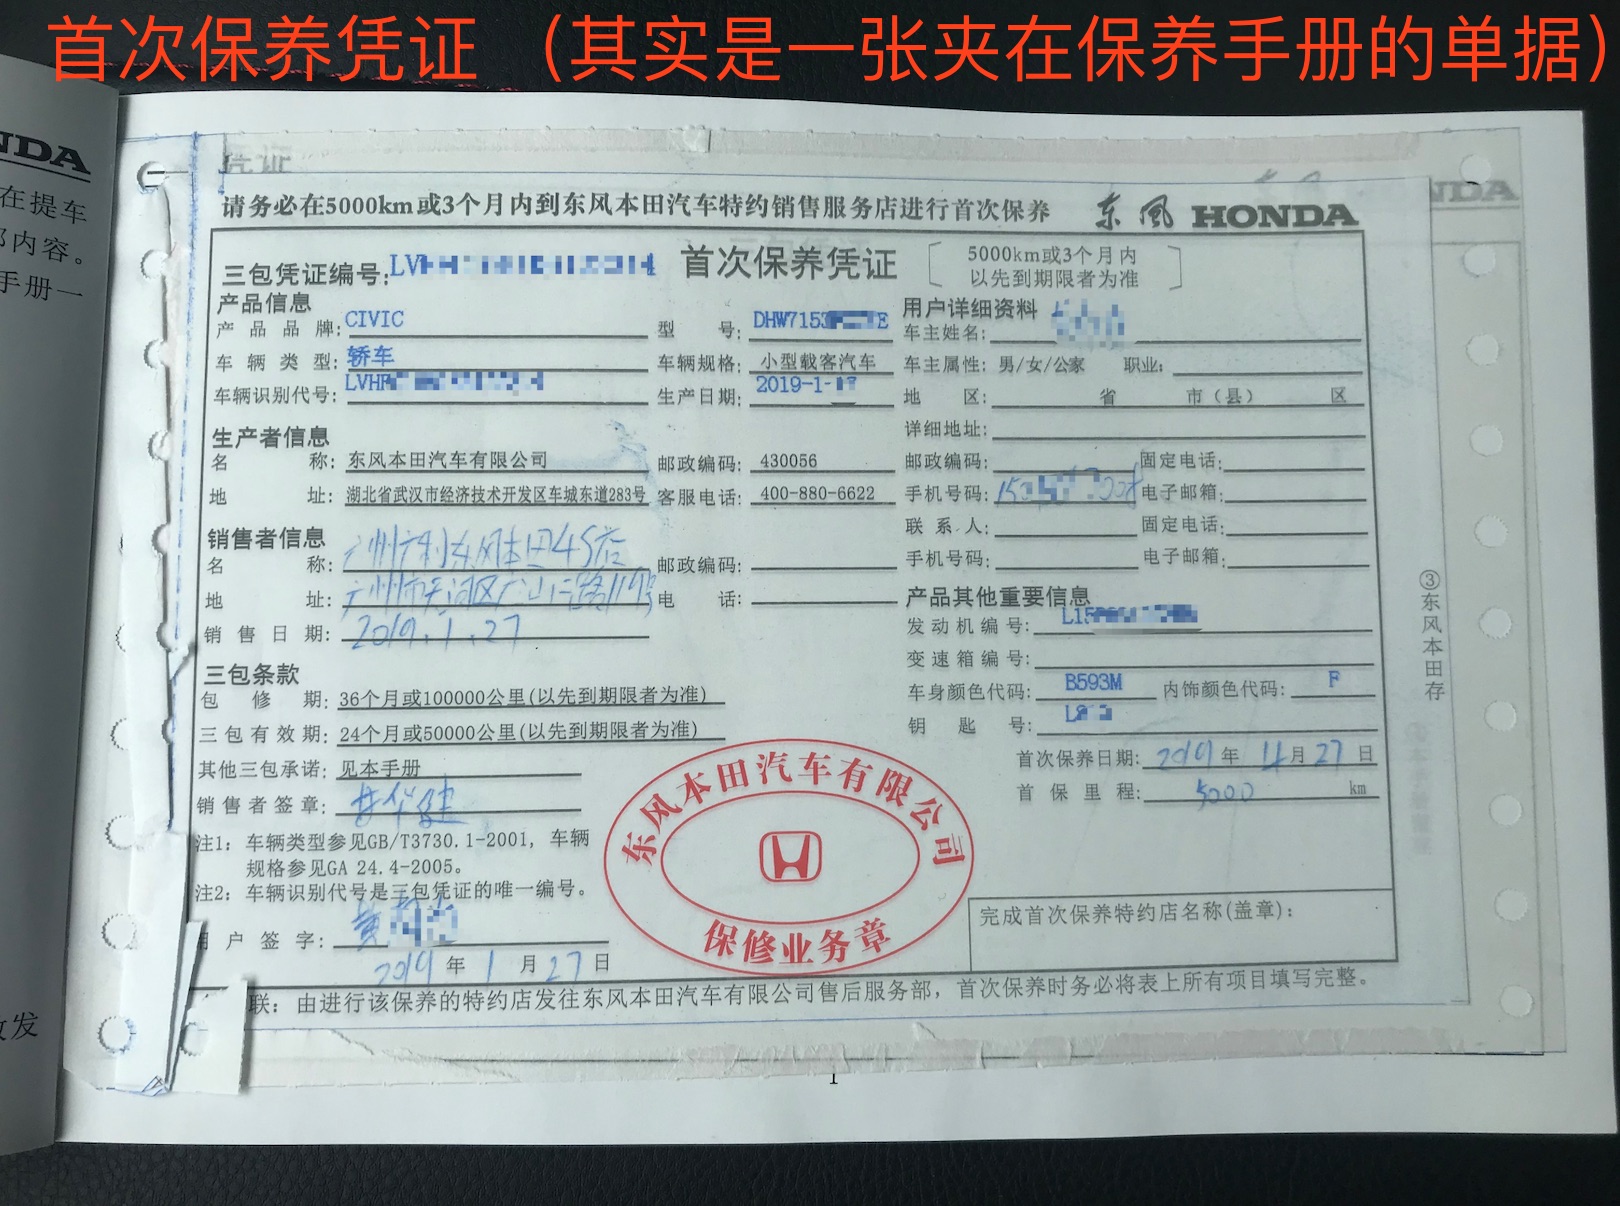 首次保养凭证（其实是一张夹在保养手册的单据）
NDA
在提车
部内容。
手册一
凭证
NDA
请务必在5000km或3个月内到东风本田汽车特约销售服务店进行首次保养 东风 HONDA
三包凭证编号: LV
首次保养凭证
5000km或3个月内
以先到期限者为准
产品信息
产品品牌: CIVIC
型号: DHW7153 E
车辆类型: 轿车
车辆规格: 小型载客汽车
车辆识别代号: LVHR
生产日期: 2019-1-
用户详细资料
车主姓名:
车主属性: 男/女/公家 职业:
地区: 省 市(县) 区
详细地址:
邮政编码: 固定电话:
手机号码: 电子邮箱:
联系人: 固定电话:
手机号码: 电子邮箱:
生产者信息
名称: 东风本田汽车有限公司
邮政编码: 430056
地址: 湖北省武汉市经济技术开发区车城东道283号
客服电话: 400-880-6622
销售者信息
名称: 广州广利东风本田4S店
邮政编码:
地址: 广州市天河区广山二路119号
电话:
销售日期: 2019.1.27
产品其他重要信息
发动机编号: L15
变速箱编号:
车身颜色代码: B593M 内饰颜色代码: F
钥匙号:
首次保养日期: 2019年4月27日
首保里程: 5000 km
三包条款
包修期: 36个月或100000公里(以先到期限者为准)
三包有效期: 24个月或50000公里(以先到期限者为准)
其他三包承诺: 见本手册
销售者签章:
注1: 车辆类型参见GB/T3730.1-2001, 车辆
规格参见GA 24.4-2005。
注2: 车辆识别代号是三包凭证的唯一编号。
用户签字: 黄
2019年1月27日
东风本田汽车有限公司
保修业务章
完成首次保养特约店名称(盖章):
联: 由进行该保养的特约店发往东风本田汽车有限公司售后服务部, 首次保养时务必将表上所有项目填写完整。
③东风本田存
发
1